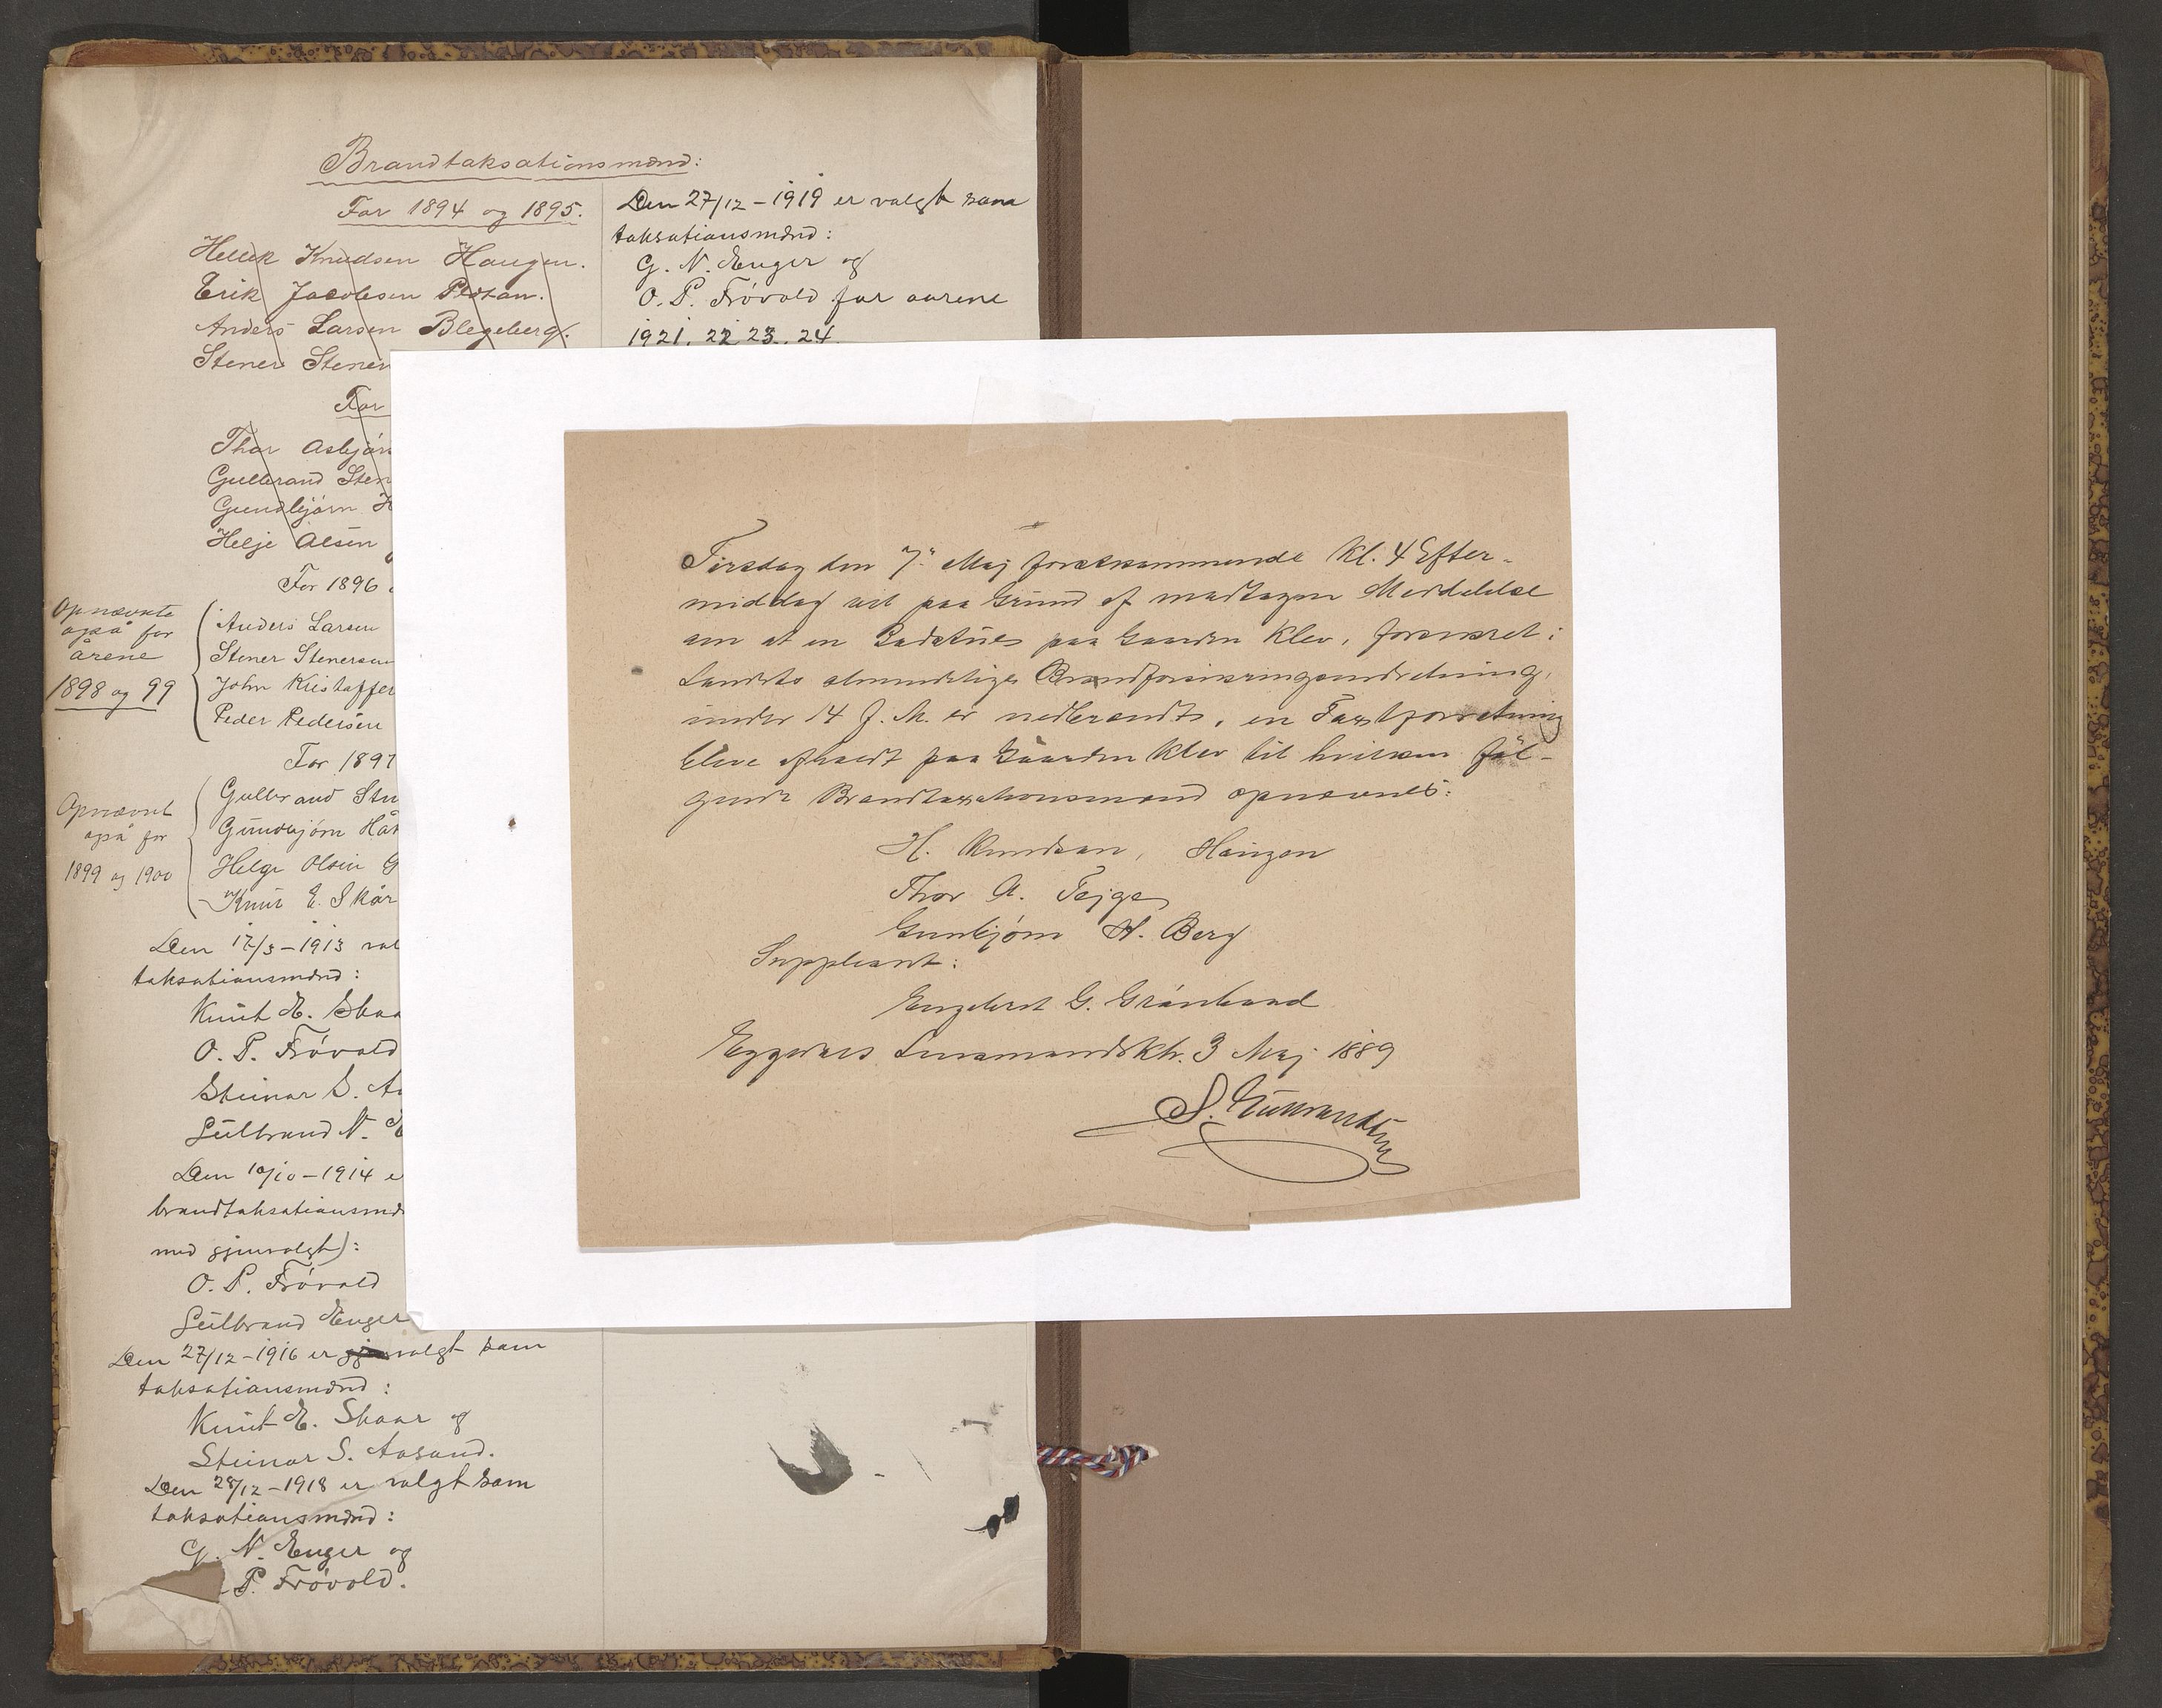 Brandtaksationsmænd:
For 1894 og 1895.
Hellik Knudsen Haugen.
Erik Jacobsen
Anders Larsen Blegeberg.
Stener Stener
For
Thor Asbjørn
Gulbrand Sten
Gundbjørn H
Helje Olsen
For 1896
Opnævnte
også for
årene
1898 og 99
Anders Larsen
Stener Stenersen
John Kristoffer
Peder Pedersen
For 1897
Opnævnt
også for
1899 og 1900
Gulbrand Ste
Gundbjørn Hår
Helge Olsen G
Knut E. Skår
Den 17/3-1913 val
taksationsmænd:
Knut E. Skaa
O. P. Frøvold
Steinar S. Aa
Gulbrand N. E
Den 10/10-1914 e
brandtaksationsmæ
med gjenvalgt):
O. P. Frøvold
Gulbrand Enger
Den 27/12-1916 er valgt som
taksationsmænd:
Knut E. Skaar og
Steinar S. Aasand.
Den 28/12-1918 er valgt som
taksationsmænd:
G. N. Enger og
P. Frøvold.
Den 27/12-1919 er valgt som
taksationsmænd:
G. N. Enger og
O. P. Frøvold for aarene
1921, 22, 23, 24.
Tirsdag den 7de Maj førstkommende Kl. 4 Efter-
middag vil paa Grund af modtagen Meddelelse
om at en Badstue paa Gaarden Klev, forsikret i
Landets almindelige Brandforsikringsindretning,
under 14 f. M. er nedbrændt, en Taxtforretning
blive afholdt paa Gaarden Klev til hvilken føl-
gende Brandtaxationsmænd opnævnes:
H. Knudsen, Haugen
Thor A. Tejge
Gunbjørn H. Berg
Suppleant:
Engebret G. Grånband
Eggedals Lensmandsktr. 3 Maj 1889
S. Gulbrandsen